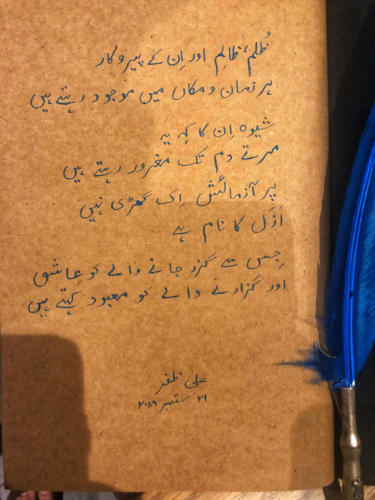 ظُلم، ظالِم اور اِن کے پیروکار
ہر زمان و مکاں میں موجود رہتے ہیں
شیوہ اِن کا کہ یہ
مرتے دم تک مغرور رہتے ہیں
پر آزمائش اِک گھڑی نہیں
اَزَل کا نام ہے
جِس سے گزر جانے والے کو عاشق
اور گزارنے والے کو معبود کہتے ہیں
علی ظفر
۲۱ ستمبر ۲۰۱۹